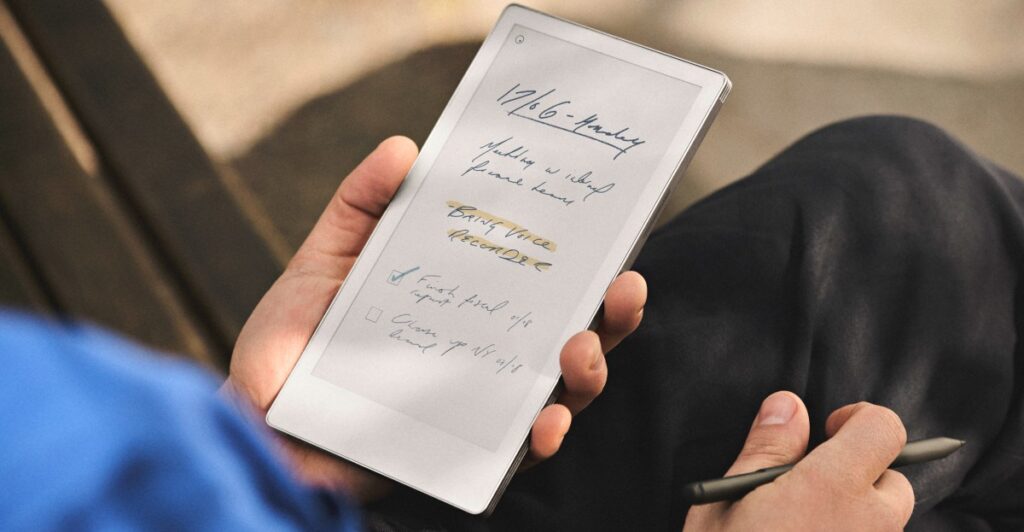 17/06 - Monday
Meeting w
finance team
BRING VOICE
RECORDER
Finish fiscal
report 01/18
Close up NY 01/18